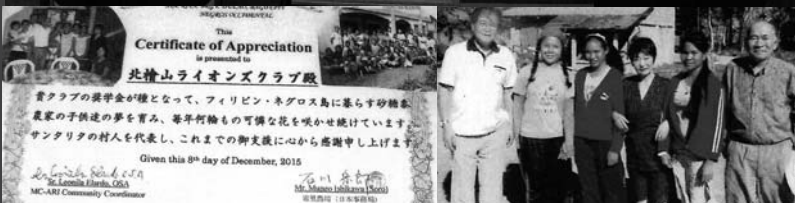 NEGROS OCCIDENTAL
This
Certificate of Appreciation
is presented to
北檜山ライオンズクラブ殿
貴クラブの奨学金が種となって、フィリピン・ネグロス島に暮らす砂糖黍
農家の子供達の夢を育み、毎年何輪もの可憐な花を咲かせ続けています。
サンタリタの村人を代表し、これまでの御支援に心から感謝申し上げます
Given this 8th day of December, 2015
Sr. Leonila Elardo, OSA
MC-ARI Community Coordinator
石川
Mr. Muneo Ishikawa (Soru)